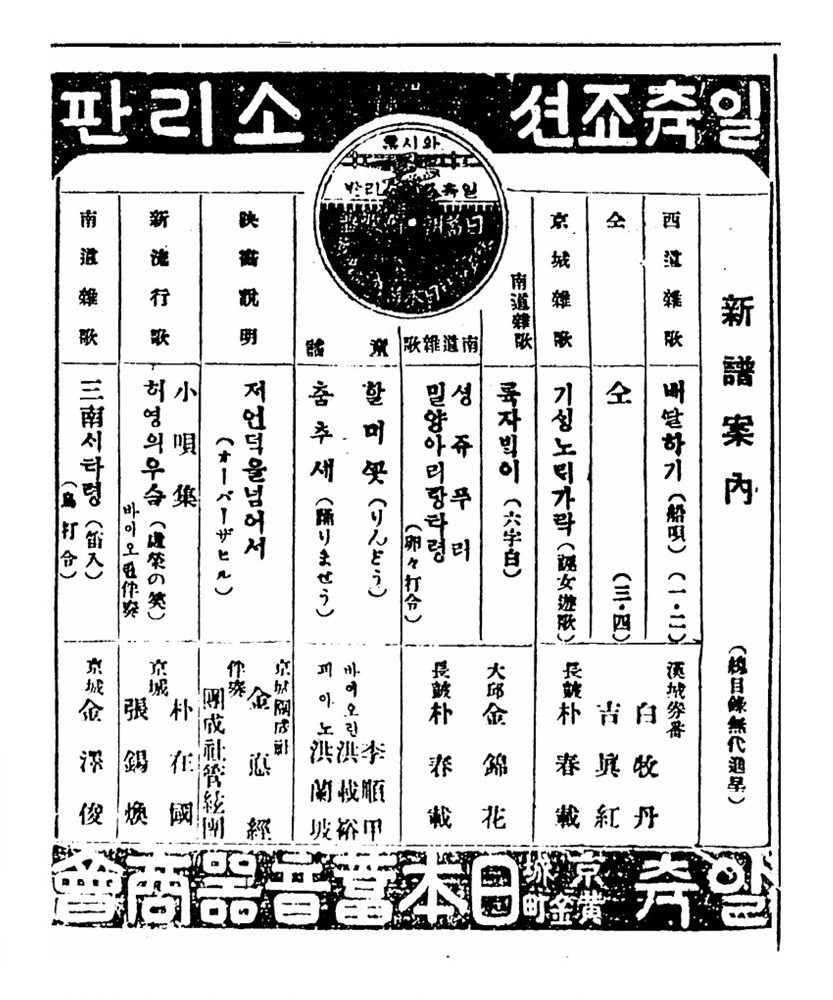 일축죠션 소리판
新譜案內
(總目錄無代進呈)
西道雜歌
배따라기(船唄)(一·二)
仝
仝(三·四)
漢城券番
白牧丹
吉眞紅
京城雜歌
기싱노리가락
長皷 朴春載
南道雜歌
륙자빅이(六字白)
南道雜歌
셩쥬푸리
밀양아리랑타령(卵々打令)
大邱 金錦花
長皷 朴春載
童謠
할미꼿(りんどう)
춤추세(踊りませう)
바이오린
李順甲
洪載裕
피아노 洪蘭坡
映畵說明
저언덕을넘어서
(オーバーザヒル)
京城團成社
金悳經
伴奏
團成社管絃團
新流行歌
小唄集
허영의우슴(虛榮の笑)
바이오린伴奏
京城 朴在國
張錫煥
南道雜歌
三南시타령(笛入)
(鳥打令)
京城 金澤俊
일축
京城
黃金町
日本蓄音器商會